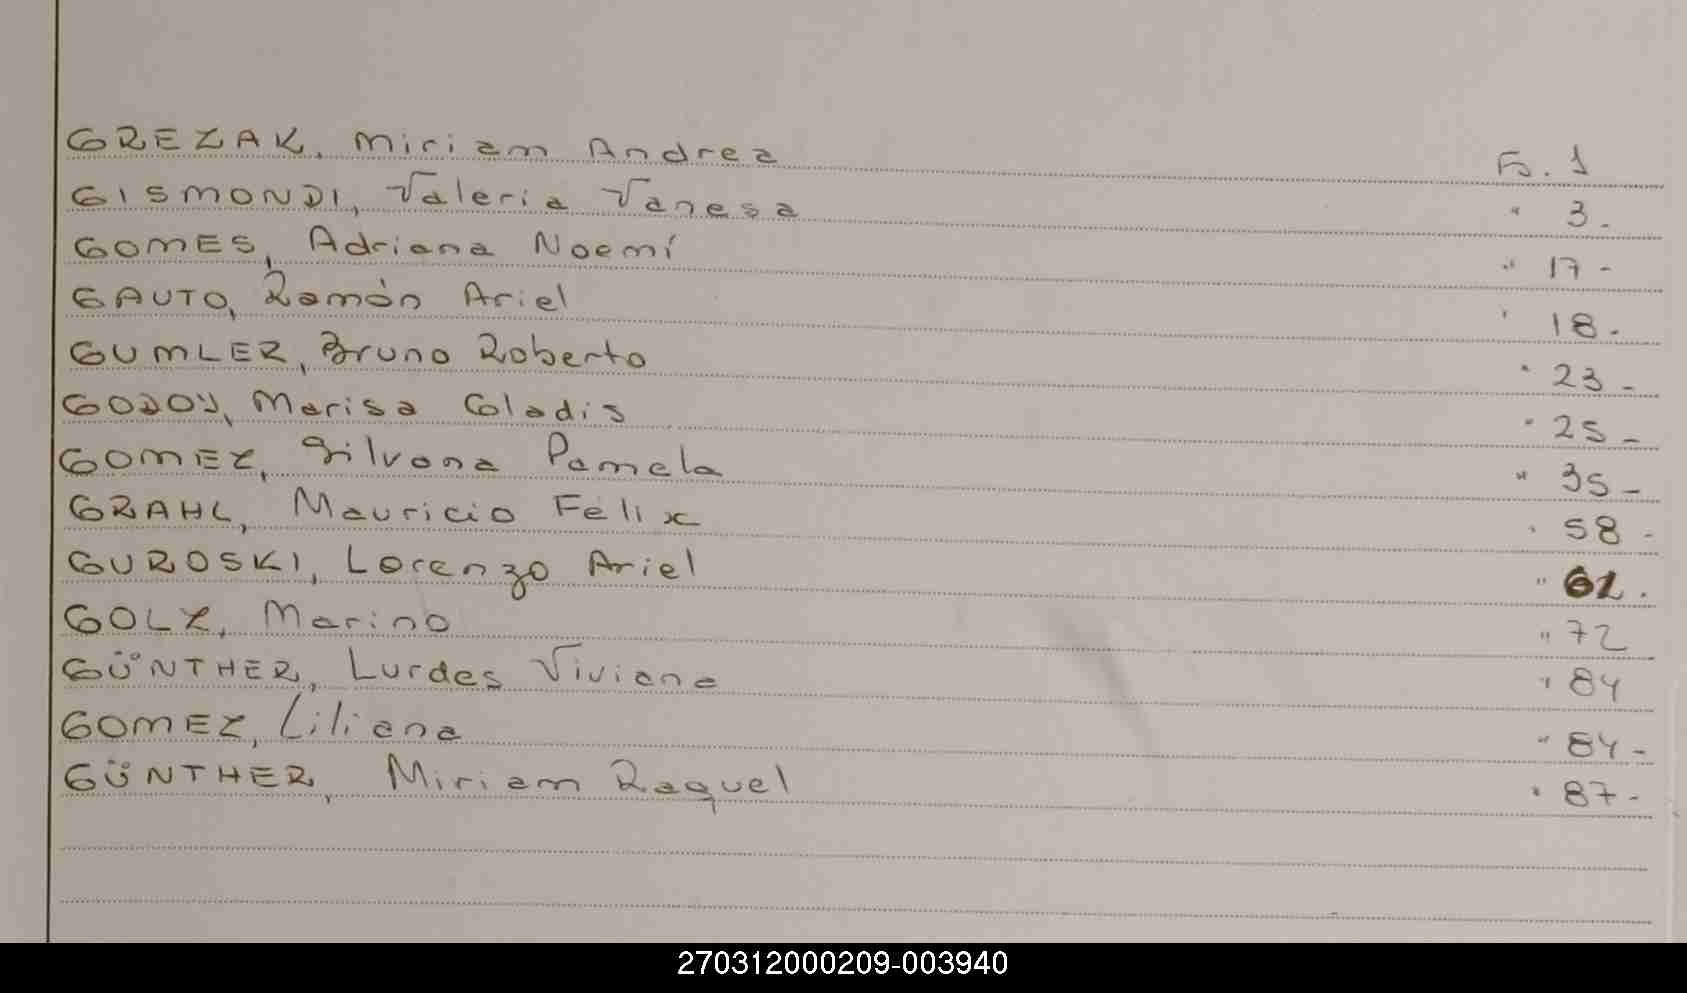 GREZAK, Miriam Andrea Fs. 1
GISMONDI, Valeria Vanesa " 3-
GOMES, Adriana Noemí " 17-
GAUTO, Ramón Ariel " 18-
GUMLER, Bruno Roberto " 23-
GODOY, Marisa Gladis " 25-
GOMEZ, Silvana Pamela " 35-
GRAHL, Mauricio Felix " 58-
GUROSKI, Lorenzo Ariel " 62.
GOLZ, Marino " 72
GÜNTHER, Lurdes Viviana " 84
GOMEZ, Liliana " 84-
GÜNTHER, Miriam Raquel " 87-
270312000209-003940